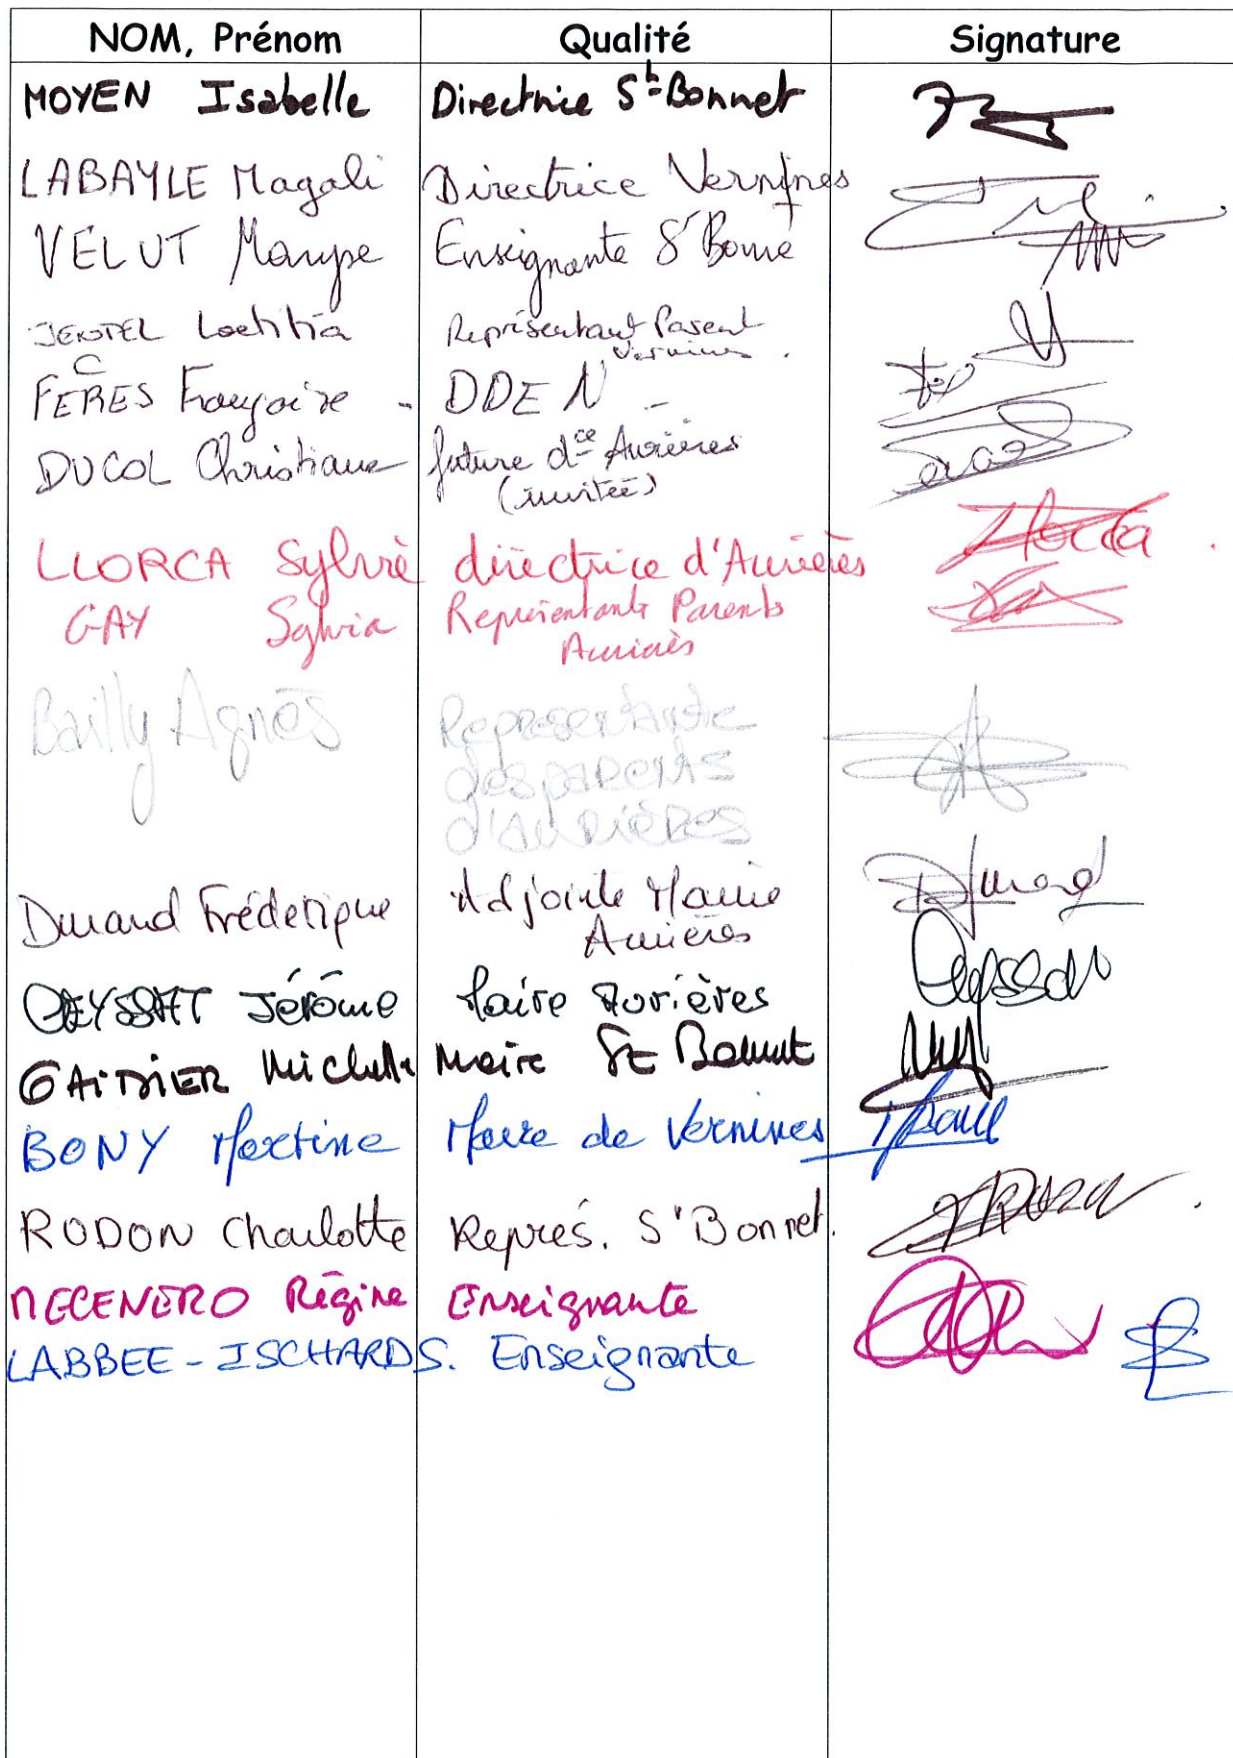 NOM, Prénom Qualité Signature
MOYEN Isabelle Directrice St Bonnet
LABAYLE Magali Directrice Vernines
VELUT Maryse Enseignante St Bonne
Laetitia Représentant Parent
Vernines.
FERES Françoise - DDEN -
DUCOL Christiane future dce Aurières
(invitée)
LLORCA Sylvie directrice d'Aurières
GAY Sylvia Représentante Parents
Aurières
Bailly Agnès Representante
des parents
d'aurières
Durand Fréderique Adjointe Mairie
Aurières
Jérôme Maire Aurières
GAIDIER Michelle Maire St Bonnet
BONY Martine Maire de Vernines
RODON Charlotte Repres. St Bonnet.
MECENERO Régine Enseignante
LABBEE - ISCHARD S. Enseignante